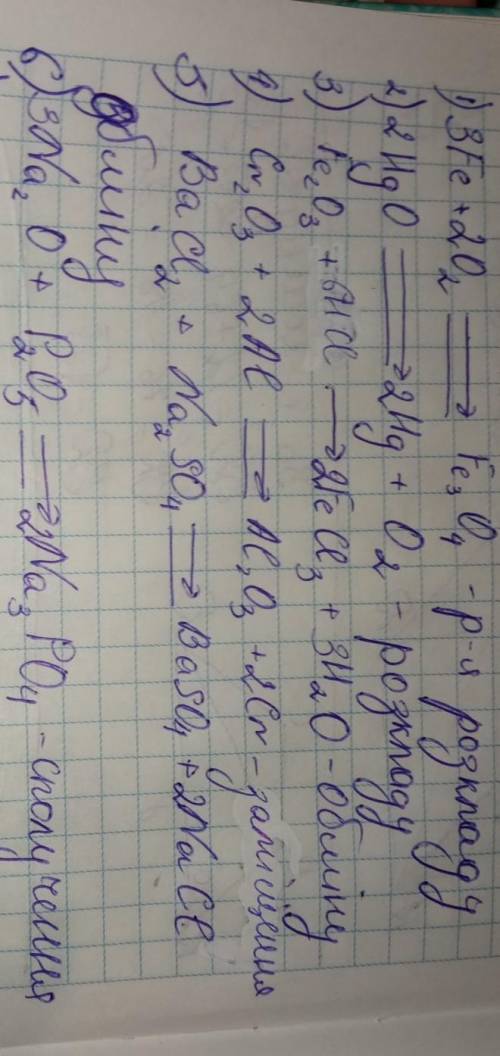 1) 3Fe + 2O₂ ⟹ Fe₃O₄ - р-я розкладу
2) 2HgO ⟹ 2Hg + O₂ - розкладу
3) Fe₂O₃ + 6HCl → 2FeCl₃ + 3H₂O - обміну
4) Cr₂O₃ + 2Al ⟹ Al₂O₃ + 2Cr - заміщення
5) BaCl₂ + Na₂SO₄ ⟹ BaSO₄ + 2NaCl
обміну
6) 3Na₂O + P₂O₅ ⟹ 2Na₃PO₄ - сполучення